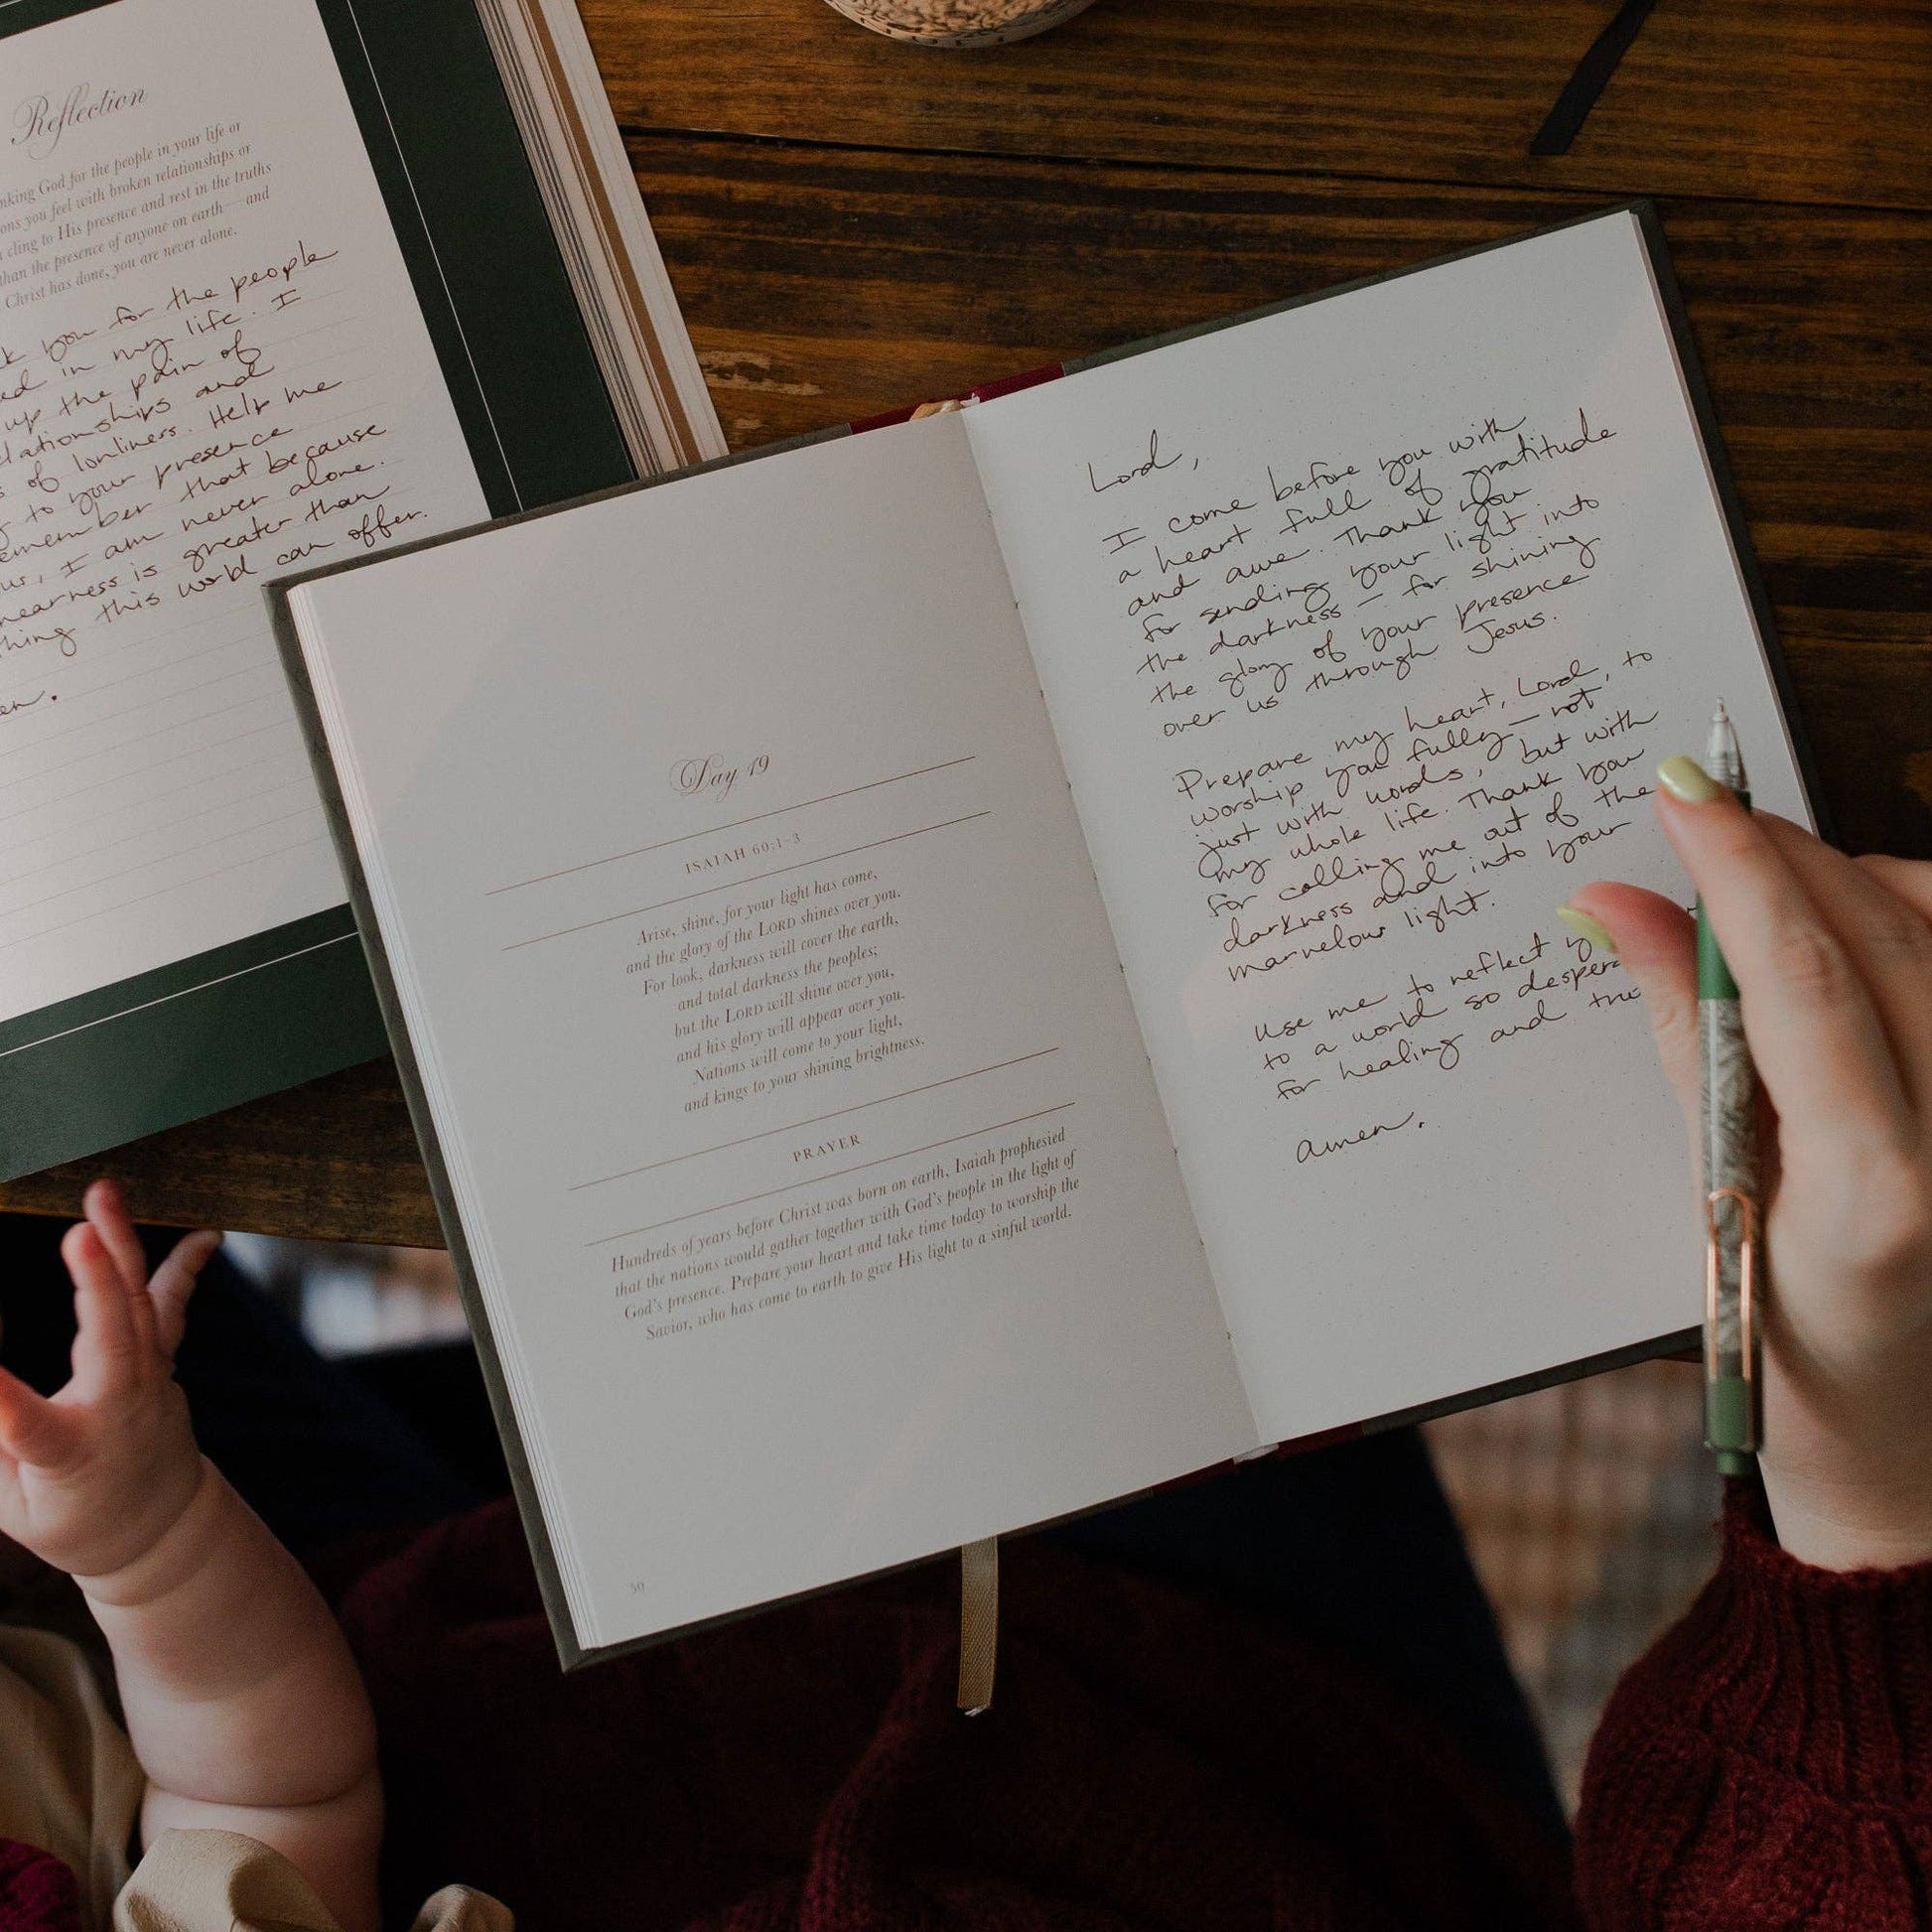 Reflection
king God for the people in your life or
ons you feel with broken relationships or
cling to His presence and rest in the truths
than the presence of anyone on earth—and
Christ has done, you are never alone.
you for the people
in my life. I
up the pain of
and
of lonliness. Help me
to your presence
that because
I am never alone.
is greater than
this world can offer.
Day 19
ISAIAH 60:1–3
Arise, shine, for your light has come,
and the glory of the LORD shines over you.
For look, darkness will cover the earth,
and total darkness the peoples;
but the LORD will shine over you,
and his glory will appear over you.
Nations will come to your light,
and kings to your shining brightness.
PRAYER
Hundreds of years before Christ was born on earth, Isaiah prophesied
that the nations would gather together with God's people in the light of
God's presence. Prepare your heart and take time today to worship the
Savior, who has come to earth to give His light to a sinful world.
50
Lord,
I come before you with
a heart full of gratitude
and awe. Thank you
for sending your light into
the darkness — for shining
the glory of your presence
over us through Jesus.
Prepare my heart, Lord, to
worship you fully — not
just with words, but with
my whole life. Thank you
for calling me out of the
darkness and into your
marvelous light.
Use me to reflect
to a world so
for healing and
amen.